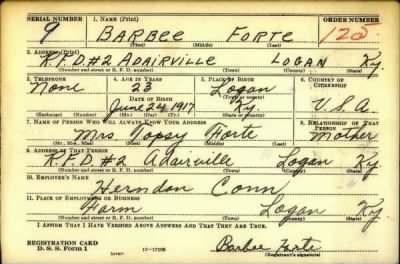 SERIAL NUMBER 1. NAME (Print) ORDER NUMBER
9 BARBEE FORTE 125
(First) (Middle) (Last)
2. ADDRESS (Print)
R.F.D.#2 ADAIRVILLE LOGAN Ky.
(Number and street or R. F. D. number) (Town) (County) (State)
3. TELEPHONE 4. AGE IN YEARS 5. PLACE OF BIRTH 6. COUNTRY OF CITIZENSHIP
None 23 Logan
(Town or county)
DATE OF BIRTH
June 24 1917 Ky. U.S.A.
(Exchange) (Number) (Mo.) (Day) (Yr.) (State or country)
7. NAME OF PERSON WHO WILL ALWAYS KNOW YOUR ADDRESS 8. RELATIONSHIP OF THAT PERSON
Mrs. Topsy Forte Mother
(Mr., Mrs., Miss) (First) (Middle) (Last)
9. ADDRESS OF THAT PERSON
R.F.D. #2 Adairville Logan Ky.
(Number and street or R. F. D. number) (Town) (County) (State)
10. EMPLOYER'S NAME
Herndon Conn
11. PLACE OF EMPLOYMENT OR BUSINESS
Farm Logan Ky.
(Number and street or R. F. D. number) (Town) (County) (State)
I AFFIRM THAT I HAVE VERIFIED ABOVE ANSWERS AND THAT THEY ARE TRUE.
REGISTRATION CARD
D. S. S. Form 1 Barbee Forte
(Registrant's signature)